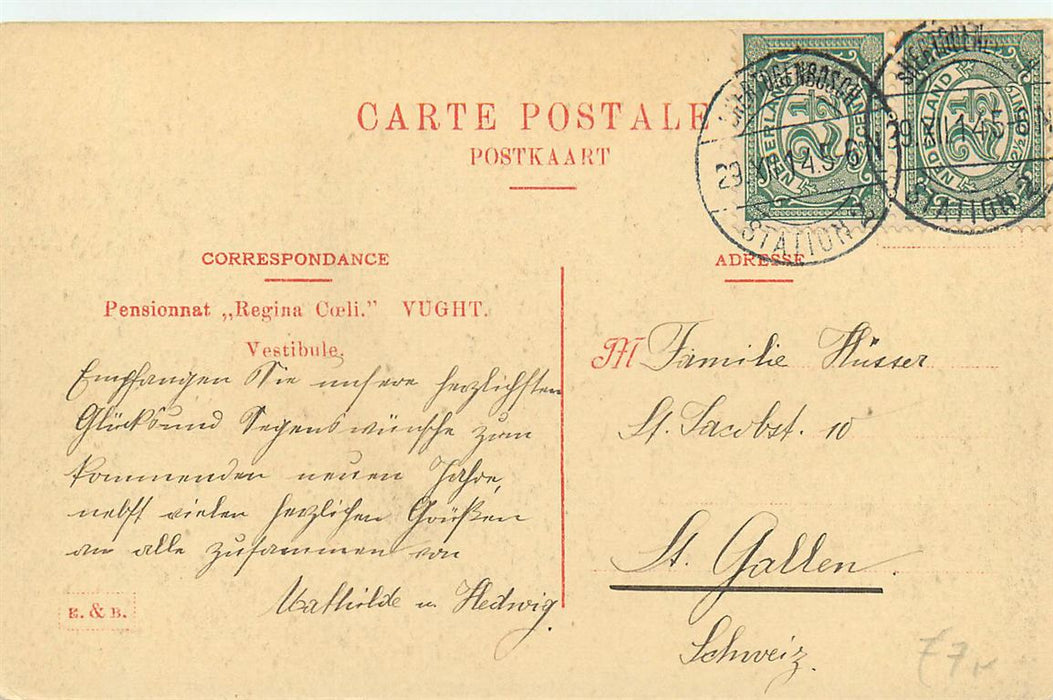 CARTE POSTALE
POSTKAART
NEDERLAND 2½ CENT 2½
NEDERLAND 2½ CENT 2½
'SHERTOGENBOSCH
29 XII 14.5-6N
STATION 2
'SHERTOGEN
29 XII 14.5
STATION 2
CORRESPONDANCE
Pensionnat „Regina Cœli.” VUGHT.
Vestibule.
Empfangen Sie unsere herzlichsten
Glücks und Segenswünsche zum
kommenden neuen Jahre,
nebst vielen herzlichen Grüßen
an alle zusammen von
Mathilde u Hedwig.
E. & B.
ADRESSE
M Familie Hüsser
St. Jacobst. 10
St. Gallen.
Schweiz.